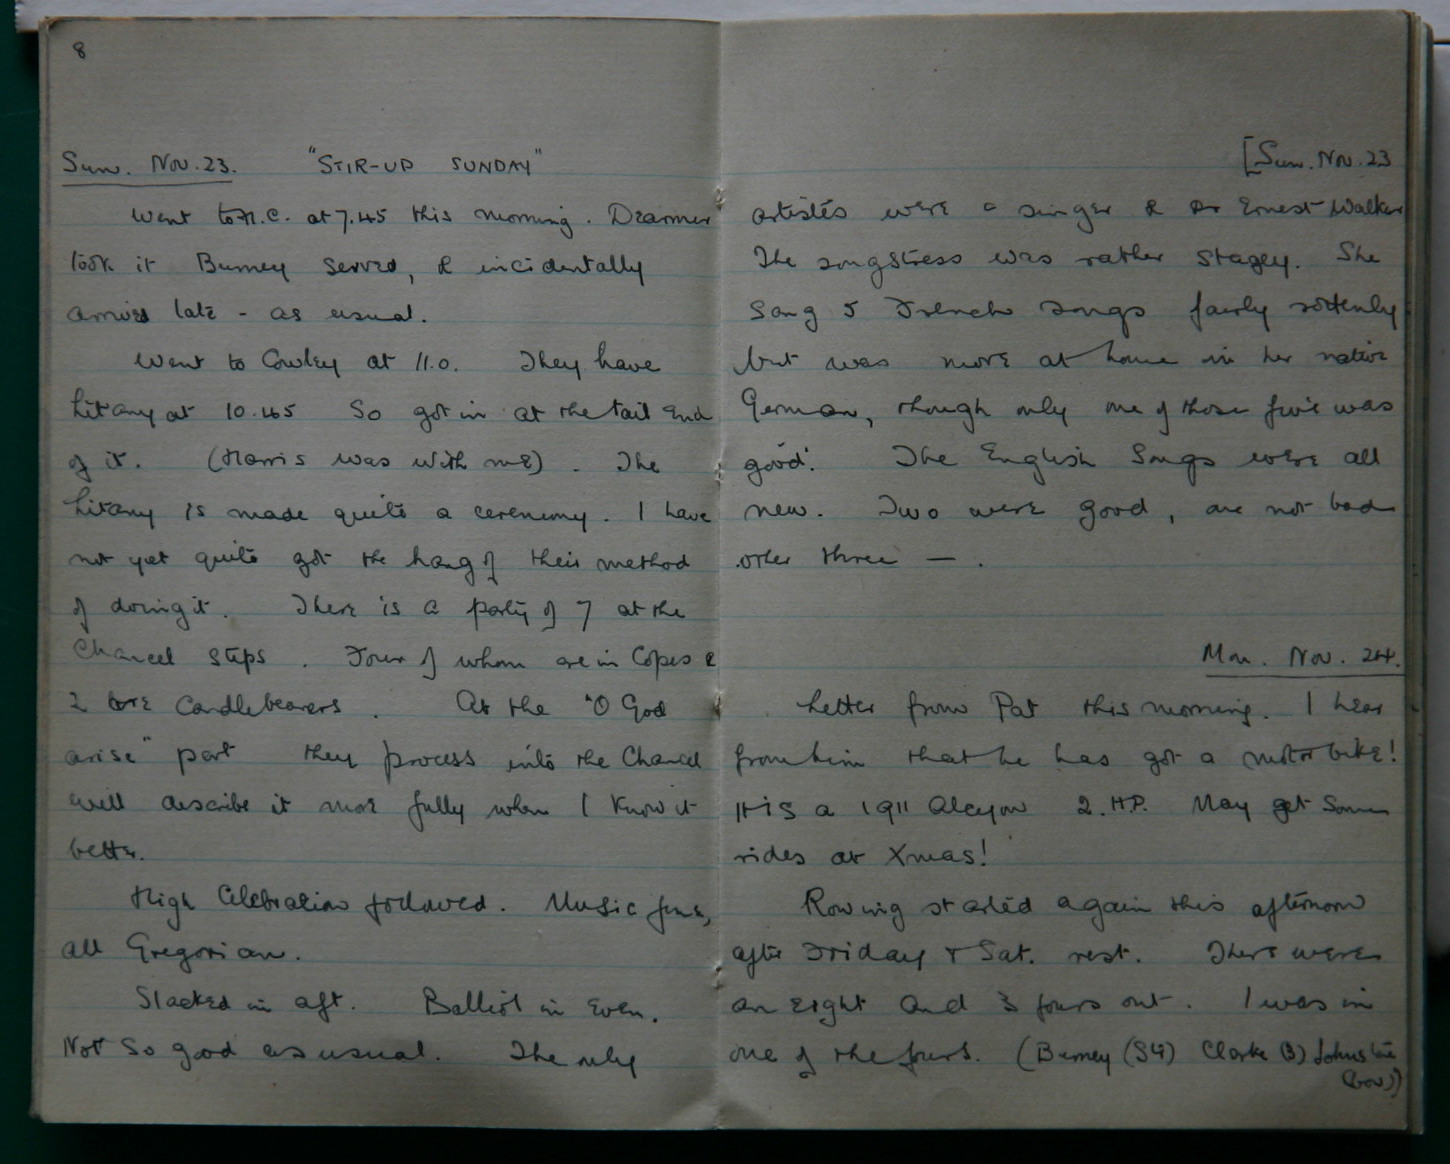 8
Sun. Nov. 23. "STIR-UP SUNDAY"
Went to H.C. at 7.45 this morning. Dearmer
took it Burney served, & incidentally
arrived late - as usual.
Went to Cowley at 11.0. They have
Litany at 10.45 So got in at the tail end
of it. (Harris was with me). The
Litany is made quite a ceremony. I have
not yet quite got the hang of their method
of doing it. There is a party of 7 at the
Chancel steps. Four of whom are in Copes &
2 are Candlebearers. At the "O God
arise" part they process into the Chancel
will describe it more fully when I know it
better.
High Celebration followed. Music fine,
all Gregorian.
Slacked in aft. Balliol in Even.
Not so good as usual. The only
[Sun. Nov. 23
artistes were a singer & Dr Ernest Walker
The songstress was rather stagey. She
Sang 5 French songs fairly rottenly
but was more at home in her native
German, though only one of those five was
good. The English Songs were all
new. Two were good, one not bad
other three — .
Mon. Nov. 24.
Letter from Pat this morning. I hear
from him that he has got a motor bike!
It is a 1911 Alcyon 2. H.P. May get some
rides at Xmas!
Rowing started again this afternoon
after Friday & Sat. rest. There were
an eight and 3 fours out. I was in
one of the fours. (Burney (Str) Clarke (3) Johnstone
(bow))